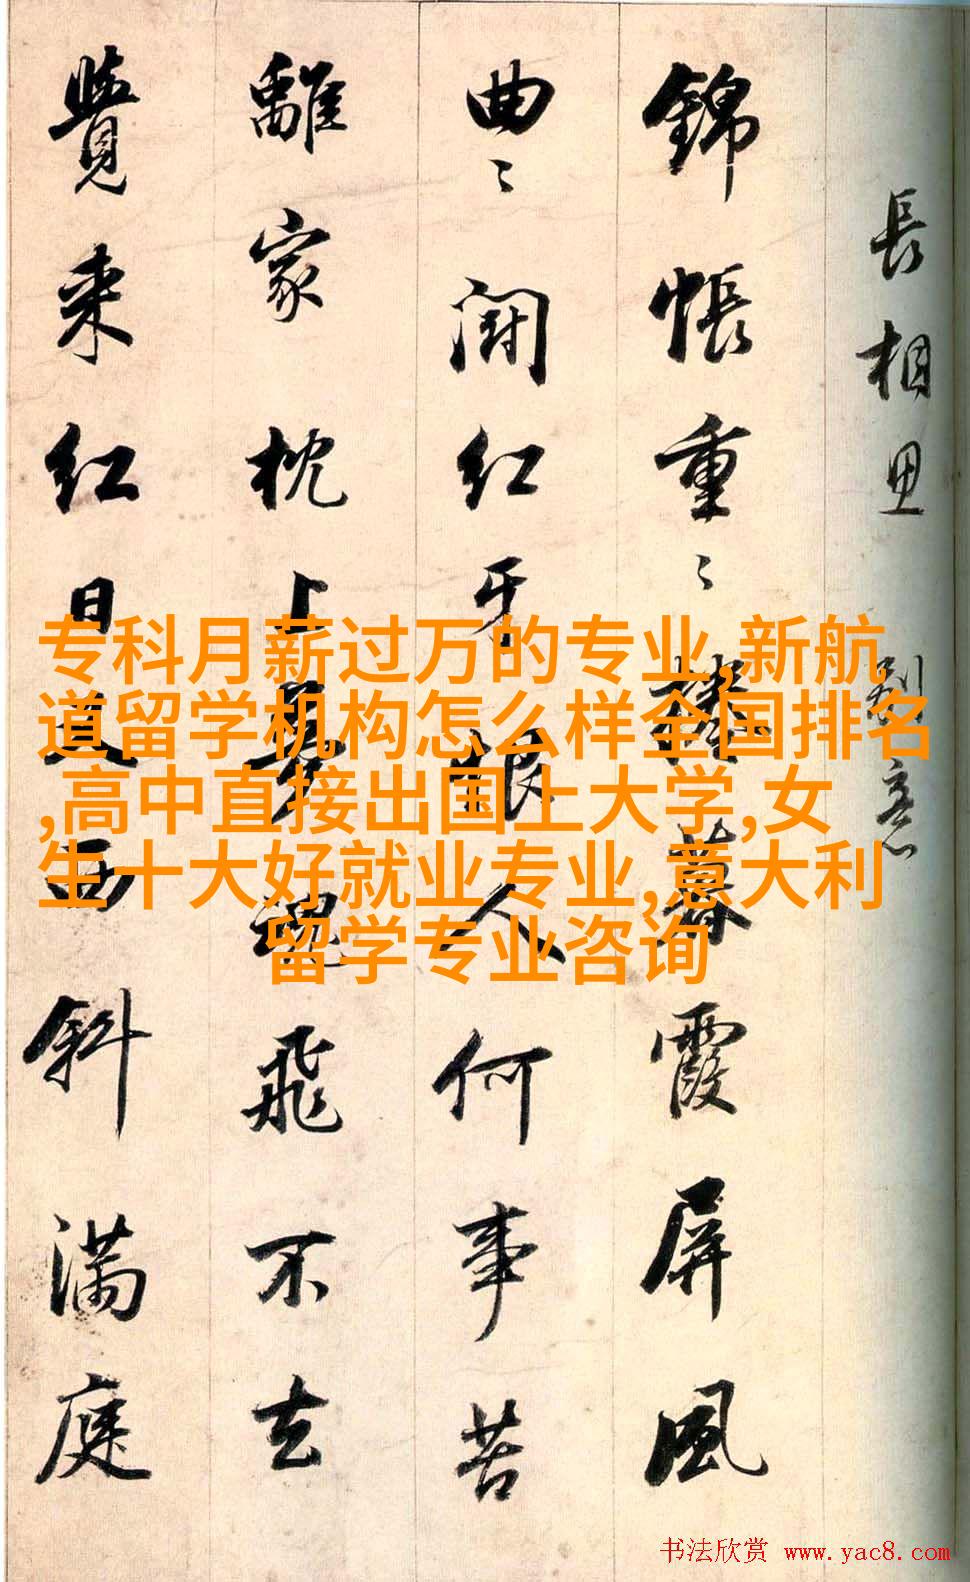 長相思 別意
錦帳重〻捲暮霞屏風
曲〻鬪紅牙恨人何事苦
離家枕上夢魂飛不去
覺来红日又西斜满庭
专科月薪过万的专业,新航
道留学机构怎么样全国排名
,高中直接出国上大学,女
生十大好就业专业,意大利
留学专业咨询
书法欣赏 www.yac8.com